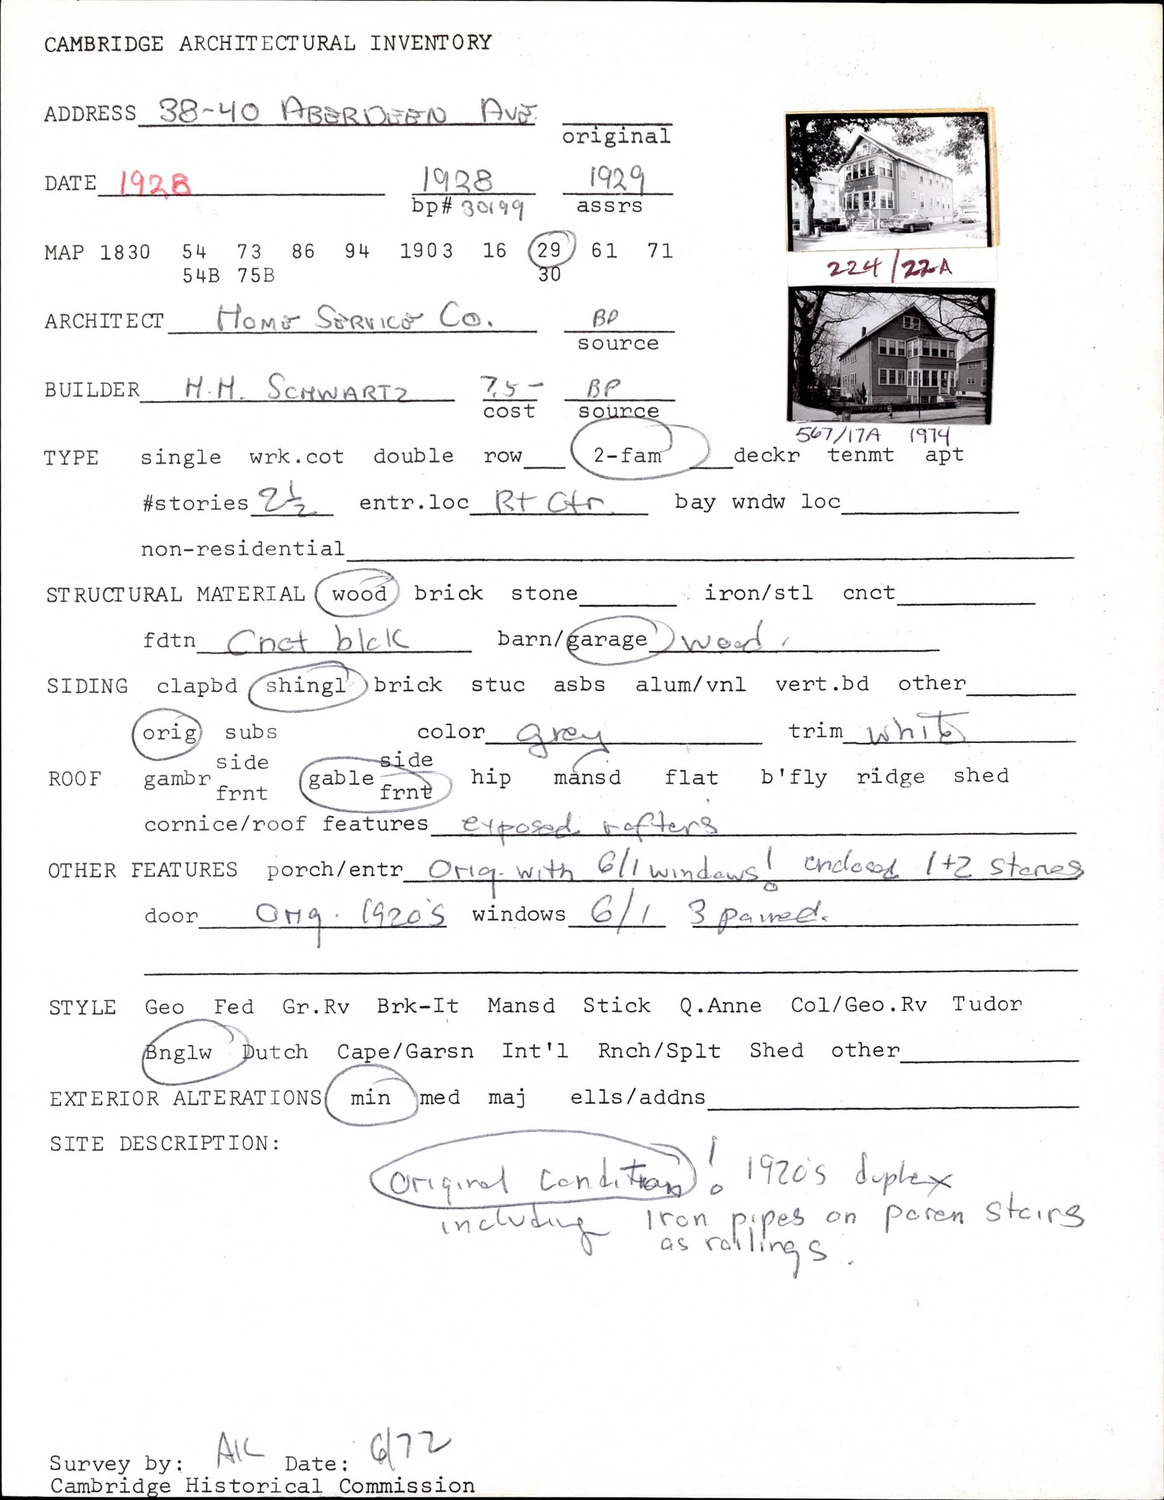 CAMBRIDGE ARCHITECTURAL INVENTORY
ADDRESS 38-40 ABERDEEN AVE.
original
DATE 1928 1928 1929
bp# 30199 assrs
MAP 1830 54 73 86 94 1903 16 29 61 71
54B 75B 30
224/22A
ARCHITECT HOME SERVICE CO. BP
source
BUILDER H.H. SCHWARTZ 7,5- BP
cost source
567/17A 1974
TYPE single wrk.cot double row 2-fam deckr tenmt apt
#stories 2½ entr.loc Rt Ctr. bay wndw loc
non-residential
STRUCTURAL MATERIAL wood brick stone iron/stl cnct
fdtn Cnct blck barn/garage wood.
SIDING clapbd shingl brick stuc asbs alum/vnl vert.bd other
orig subs color grey trim white
side side
ROOF gambr gable hip mansd flat b'fly ridge shed
frnt frnt
cornice/roof features exposed rafters
OTHER FEATURES porch/entr Orig. with 6/1 windows! enclosed 1+2 stories
door Orig. 1920's windows 6/1 3 paired.
STYLE Geo Fed Gr.Rv Brk-It Mansd Stick Q.Anne Col/Geo.Rv Tudor
Bnglw Dutch Cape/Garsn Int'l Rnch/Splt Shed other
EXTERIOR ALTERATIONS min med maj ells/addns
SITE DESCRIPTION:
Original Condition! 1920's duplex
including Iron pipes on stairs
as railings.
Survey by: AK Date: 6/72
Cambridge Historical Commission